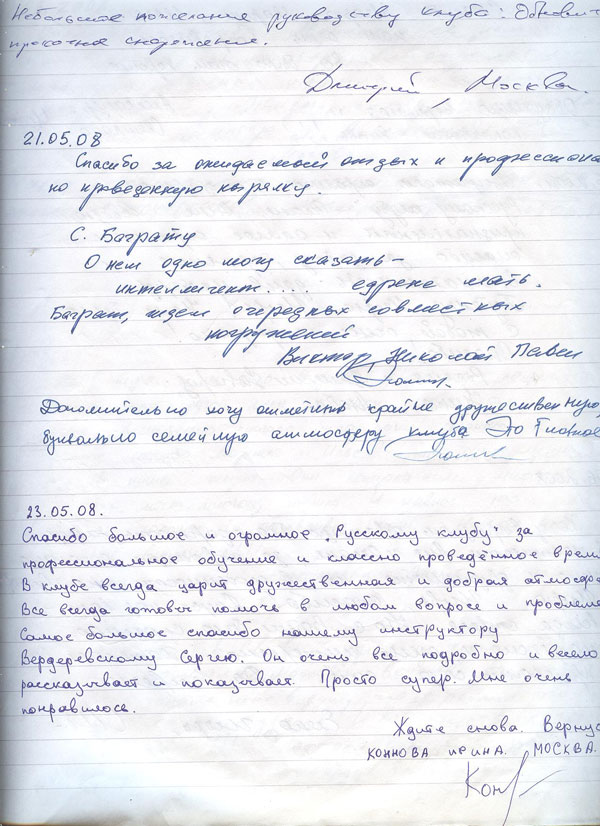 Небольшие пожелания руководству клуба: Обновит
прокатное снаряжение.
Дмитрий, Москва.
21.05.08
Спасибо за ожидаемый отдых и профессиона
но проведенную нырялку.
С. Баграту
О нем одно могу сказать –
интеллигент.... едрена мать.
Баграт, ждем очередных совместных
погружений
Виктор, Николай Павел
Дополнительно хочу отметить крайне дружественную,
буквально семейную атмосферу клуба Это Главное
23.05.08.
Спасибо большое и огромное "Русскому клубу" за
профессиональное обучение и классно проведённое врем
В клубе всегда царит дружественная и добрая атмосфе
Все всегда готовы помочь в любом вопросе и проблеме
Самое большое спасибо нашему инструктору
Вердеревскому Сергею. Он очень все подробно и весело
рассказывает и показывает. Просто супер. Мне очень
понравилось.
Ждите снова. Вернус
КОННОВА ИРИНА. МОСКВА.
Кон